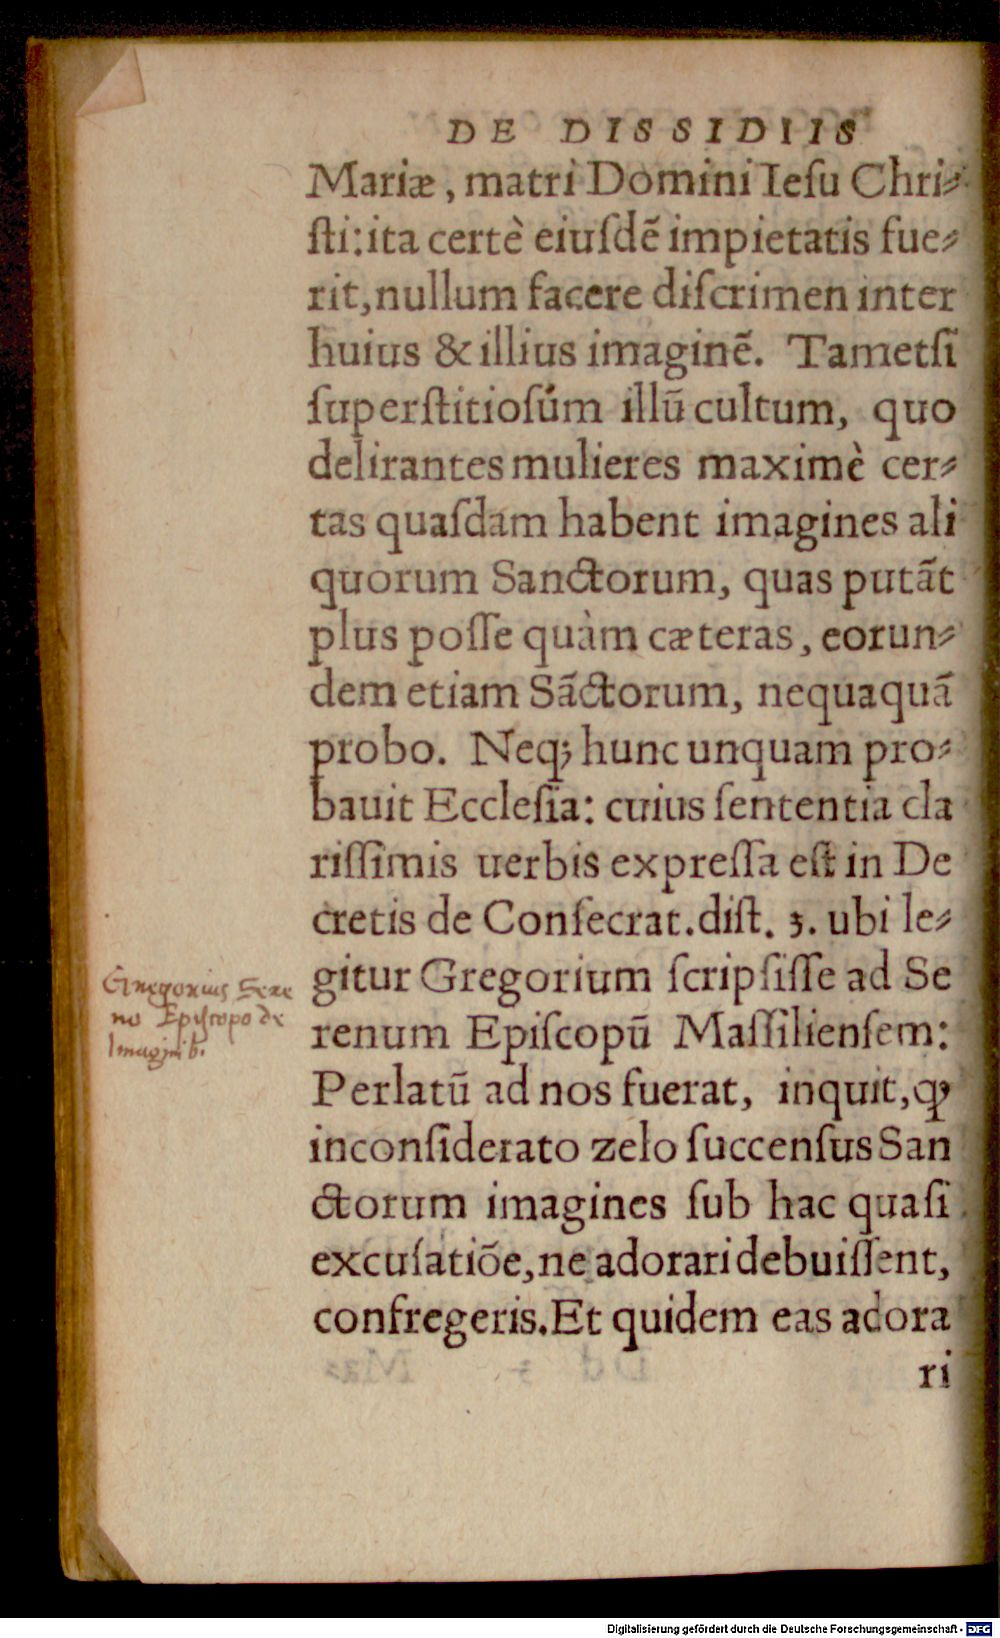 DE DISSIDIIS
Mariæ, matri Domini Ieſu Chri⸗
ſti: ita certè eiuſdē impietatis fue⸗
rit, nullum facere diſcrimen inter
huius & illius imaginē. Tametſi
ſuperſtitioſum illū cultum, quo
delirantes mulieres maximè cer⸗
tas quaſdam habent imagines ali
quorum Sanctorum, quas putāt
plus poſſe quàm cæteras, eorun⸗
dem etiam Sāctorum, nequaquā
probo. Neqꝫ hunc unquam pro⸗
bauit Eccleſia: cuius ſententia cla
riſſimis uerbis expreſſa eſt in De
cretis de Conſecrat. diſt. 3. ubi le⸗
gitur Gregorium ſcripſiſſe ad Se
renum Epiſcopū Maſſilienſem:
Perlatū ad nos fuerat, inquit, ꝙ
inconſiderato zelo ſuccenſus San
ctorum imagines ſub hac quaſi
excuſatiōe, ne adorari debuiſſent,
confregeris. Et quidem eas adora
ri
Gregorius Sere
no Epiſcopo de
Imaginib.
Digitalisierung gefördert durch die Deutsche Forschungsgemeinschaft - DFG